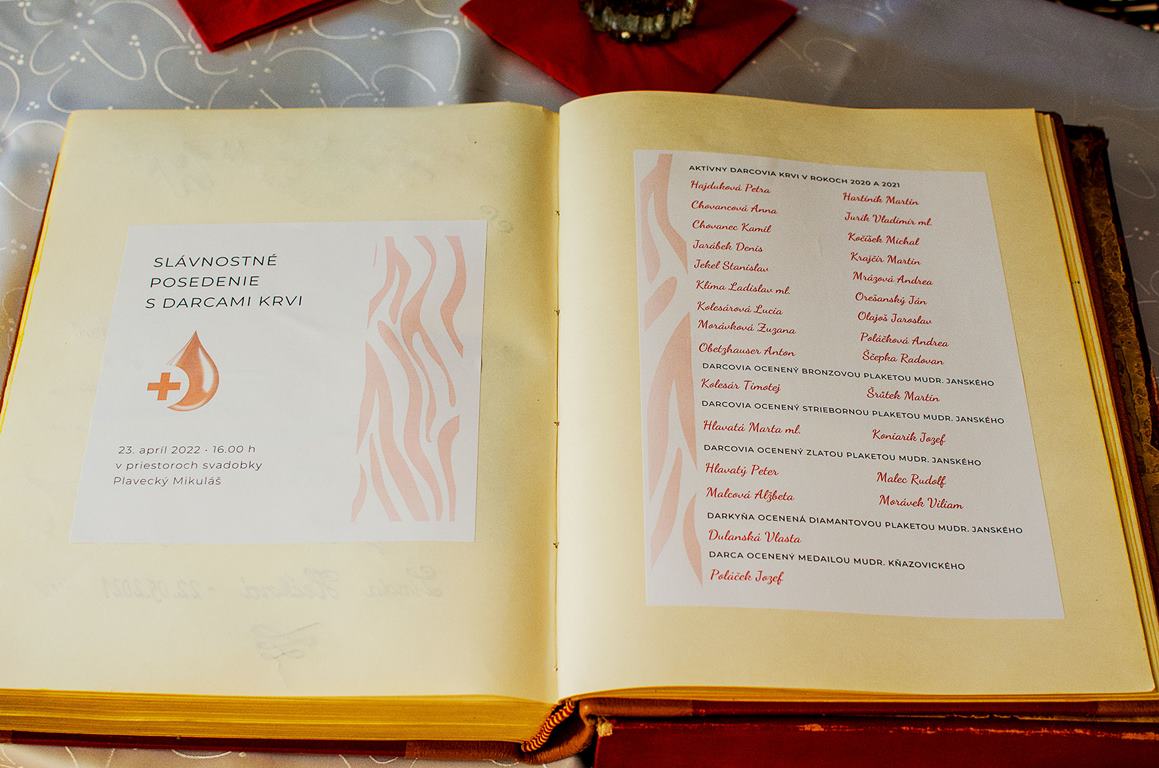 SLÁVNOSTNÉ
POSEDENIE
S DARCAMI KRVI
23. apríl 2022 • 16.00 h
v priestoroch svadobky
Plavecký Mikuláš
AKTÍVNY DARCOVIA KRVI V ROKOCH 2020 A 2021
Hajduková Petra
Chovancová Anna
Chovanec Kamil
Jarábek Denis
Jekel Stanislav
Klíma Ladislav ml.
Kolesárová Lucia
Morávková Zuzana
Obetzhauser Anton
Hartiník Martin
Jurík Vladimír ml.
Kočíšek Michal
Krajčír Martin
Mrázová Andrea
Orešanský Ján
Olajoš Jaroslav
Poláčková Andrea
Ščepka Radovan
DARCOVIA OCENENÝ BRONZOVOU PLAKETOU MUDR. JANSKÉHO
Kolesár Timotej
Šrútek Martin
DARCOVIA OCENENÝ STRIEBORNOU PLAKETOU MUDR. JANSKÉHO
Hlavatá Marta ml.
Koniarik Jozef
DARCOVIA OCENENÝ ZLATOU PLAKETOU MUDR. JANSKÉHO
Hlavatý Peter
Malec Rudolf
Malcová Alžbeta
Morávek Viliam
DARKYŇA OCENENÁ DIAMANTOVOU PLAKETOU MUDR. JANSKÉHO
Dulanská Vlasta
DARCA OCENENÝ MEDAILOU MUDR. KŇAZOVICKÉHO
Poláček Jozef